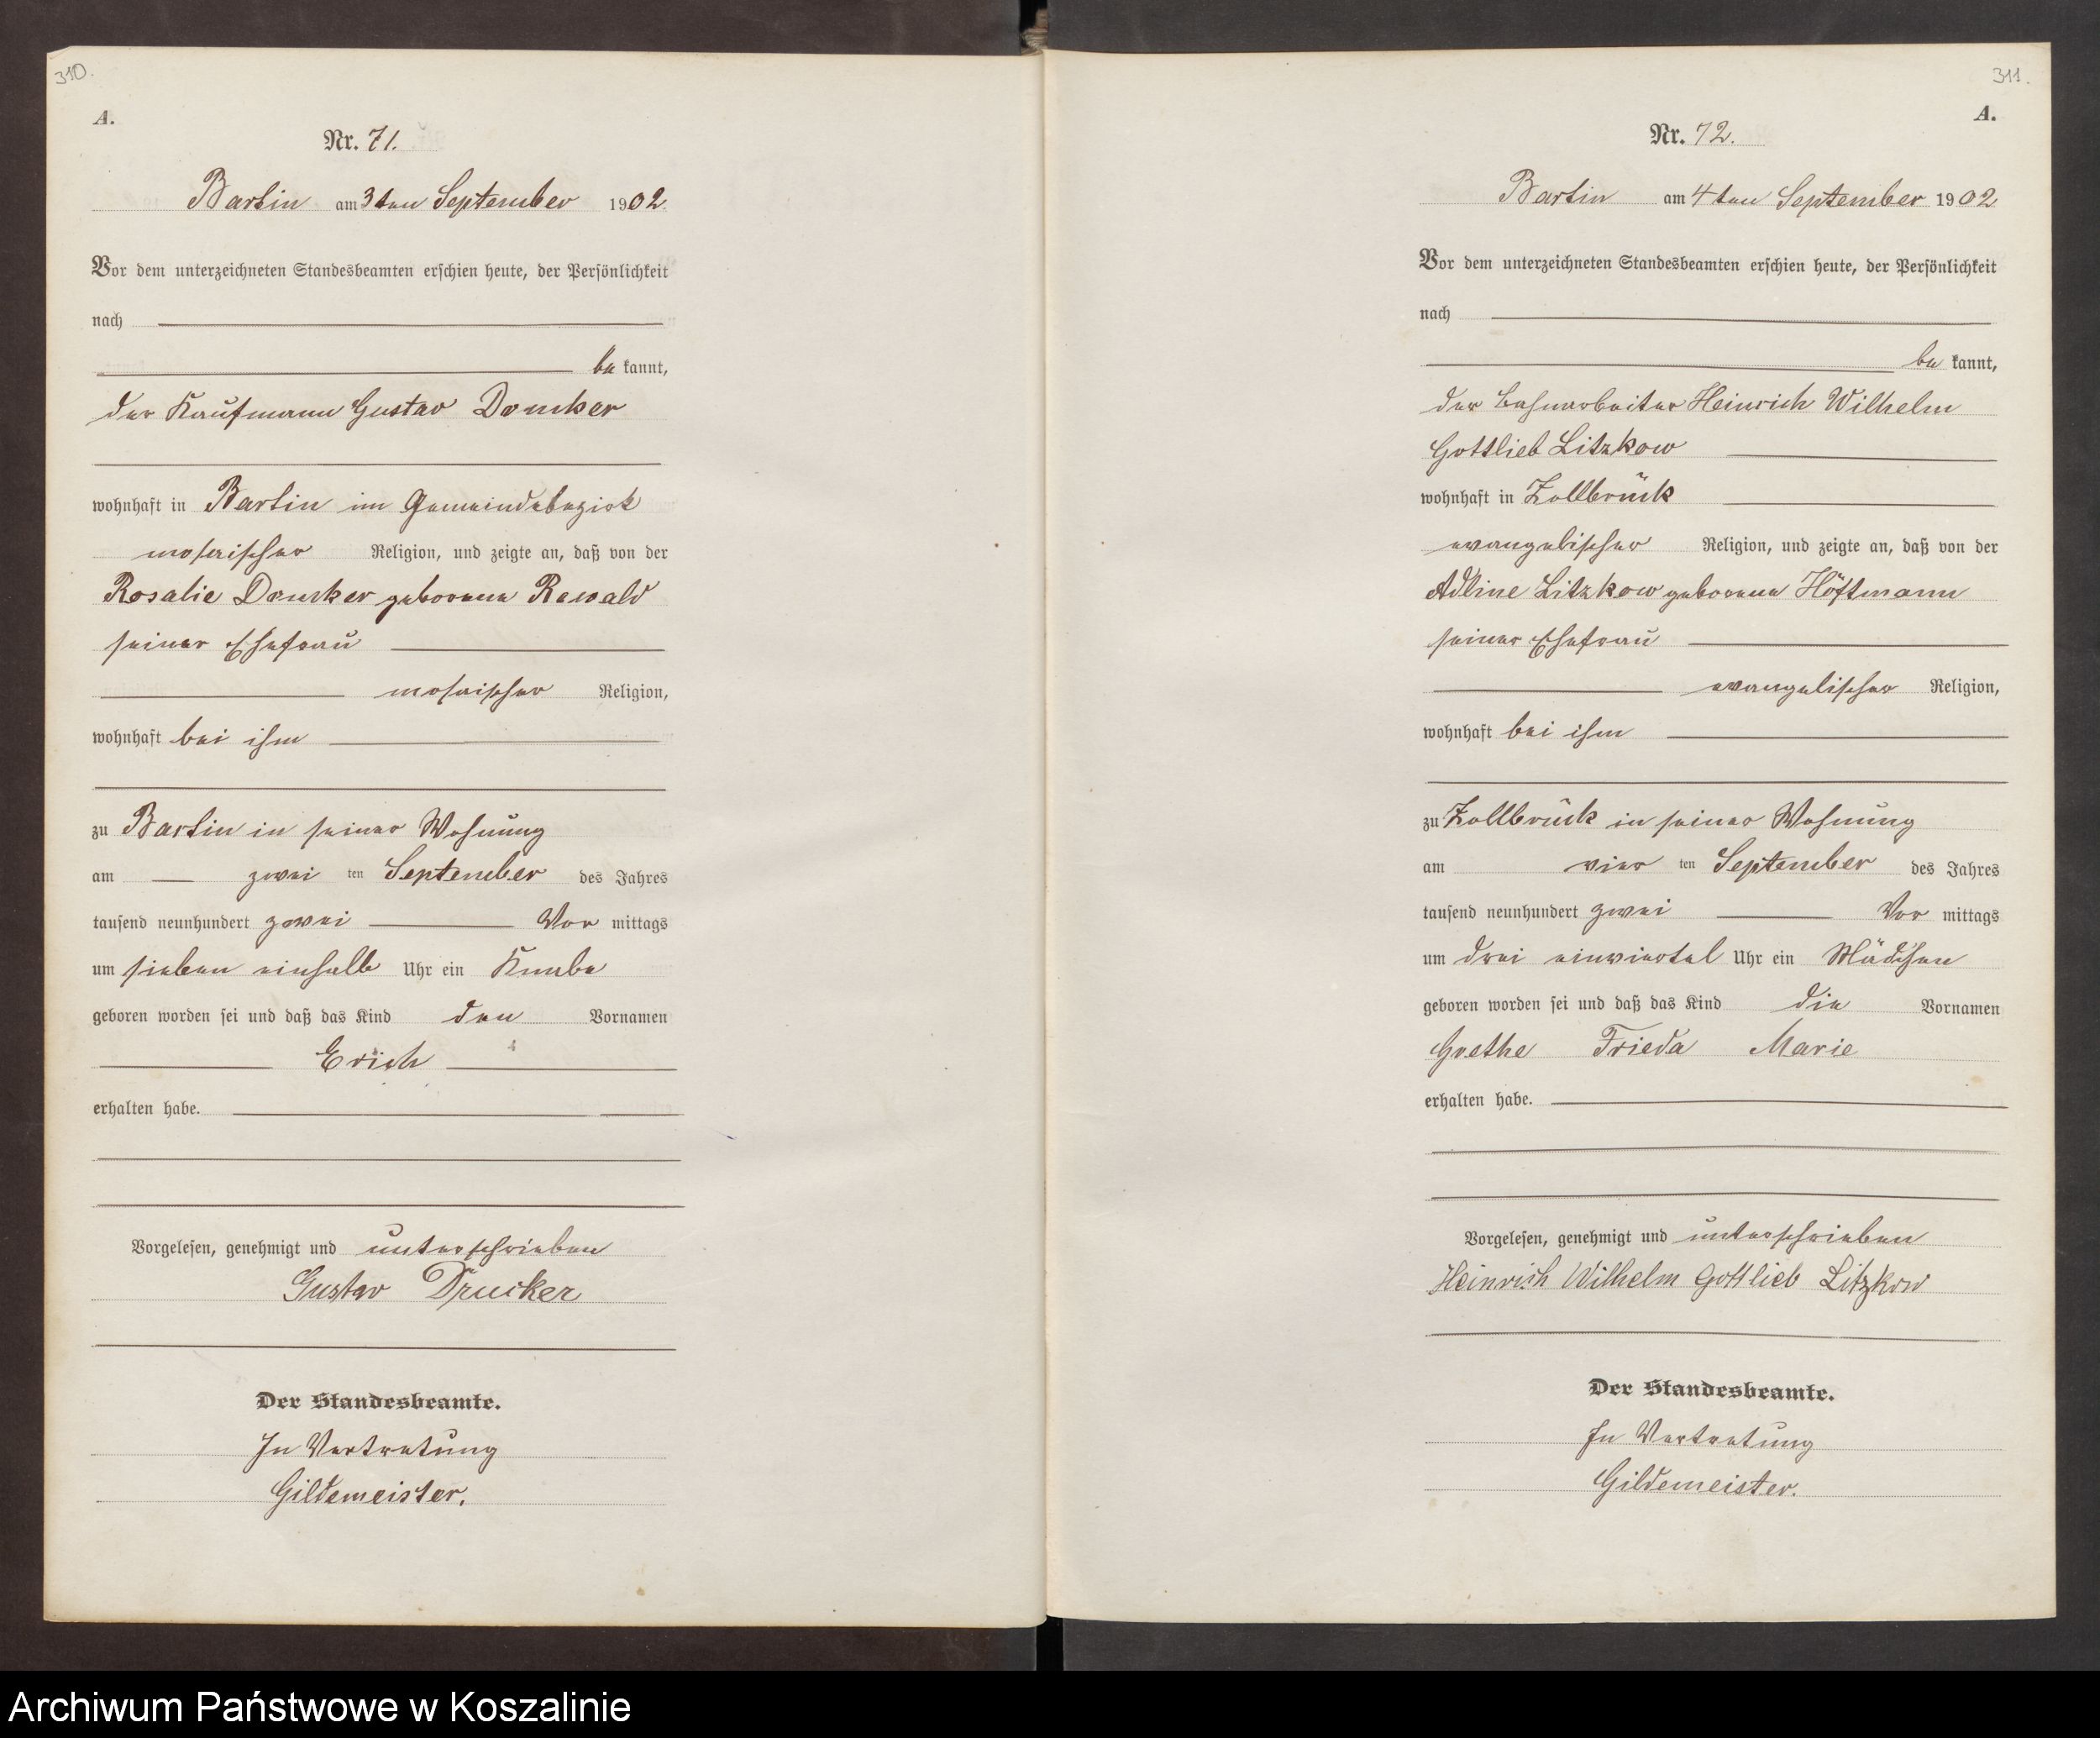 310.
A.
Nr. 71.
Bartin am 3ten September 1902.
Vor dem unterzeichneten Standesbeamten erschien heute, der Persönlichkeit
nach
be kannt,
der Kaufmann Gustav Drucker
wohnhaft in Bartin im Gemeindebezirk
mosaischer Religion, und zeigte an, daß von der
Rosalie Drucker geborene Rewald
seiner Ehefrau
mosaischer Religion,
wohnhaft bei ihm
zu Bartin in seiner Wohnung
am zwei ten September des Jahres
tausend neunhundert zwei Vor mittags
um sieben einhalb Uhr ein Knabe
geboren worden sei und daß das Kind den Vornamen
Erich
erhalten habe.
Vorgelesen, genehmigt und unterschrieben
Gustav Drucker
Der Standesbeamte.
In Vertretung
Gildemeister.
311.
A.
Nr. 72.
Bartin am 4ten September 1902
Vor dem unterzeichneten Standesbeamten erschien heute, der Persönlichkeit
nach
be kannt,
der Bahnarbeiter Heinrich Wilhelm
Gottlieb Litzkow
wohnhaft in Zollbrück
evangelischer Religion, und zeigte an, daß von der
Adline Litzkow geborene Höftmann
seiner Ehefrau
evangelischer Religion,
wohnhaft bei ihm
zu Zollbrück in seiner Wohnung
am vier ten September des Jahres
tausend neunhundert zwei Vor mittags
um drei einviertel Uhr ein Mädchen
geboren worden sei und daß das Kind die Vornamen
Grethe Frieda Marie
erhalten habe.
Vorgelesen, genehmigt und unterschrieben
Heinrich Wilhelm Gottlieb Litzkow
Der Standesbeamte.
In Vertretung
Gildemeister.
Archiwum Państwowe w Koszalinie